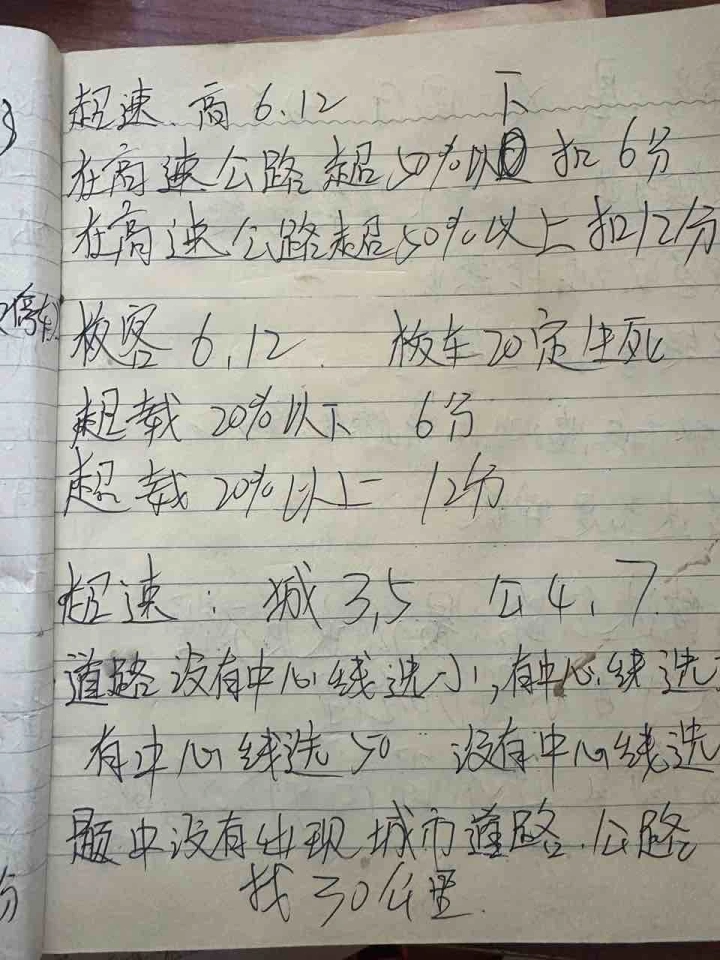 超速 高 6.12
在高速公路超50%以下 扣 6分
在高速公路超50%以上扣12分
校客 6.12 校车20定生死
超载 20%以下 6分
超载 20%以上 12分
超速: 城3,5 公4.7
道路没有中心线选小,有中心线选
有中心线选50 没有中心线选
题中没有出现城市道路.公路
找30公里.